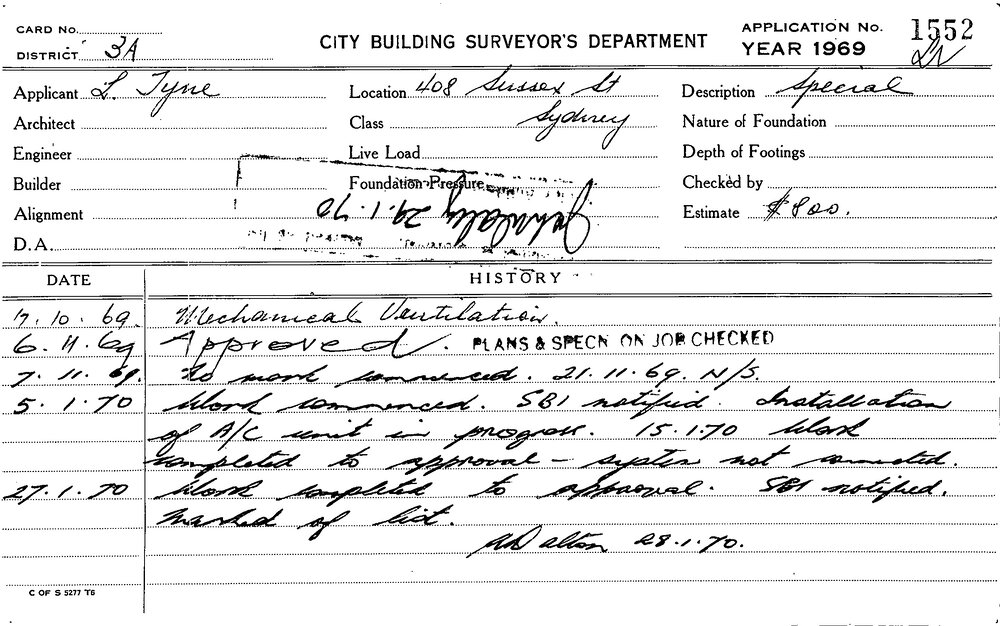 CARD No.
DISTRICT 3A
CITY BUILDING SURVEYOR'S DEPARTMENT
APPLICATION No. 1552
YEAR 1969
Applicant L. Tyne
Location 408 Sussex St
Description Special
Architect
Class Sydney
Nature of Foundation
Engineer
Live Load
Depth of Footings
Builder
Foundation Pressure
Checked by
Alignment
29.1.70
Estimate $800.
D.A.
DATE
HISTORY
7.10.69. Mechanical Ventilation.
6.11.69 Approved. PLANS & SPECN ON JOB CHECKED
7.11.69. No work commenced. 21.11.69. N/S.
5.1.70 Work commenced. SBI notified. Installation
of A/C unit in progress. 15.1.70 Work
completed to approval – system not connected.
27.1.70 Work completed to approval. SBI notified.
Marked of list.
ADalton 28.1.70.
C OF S 5277 T6